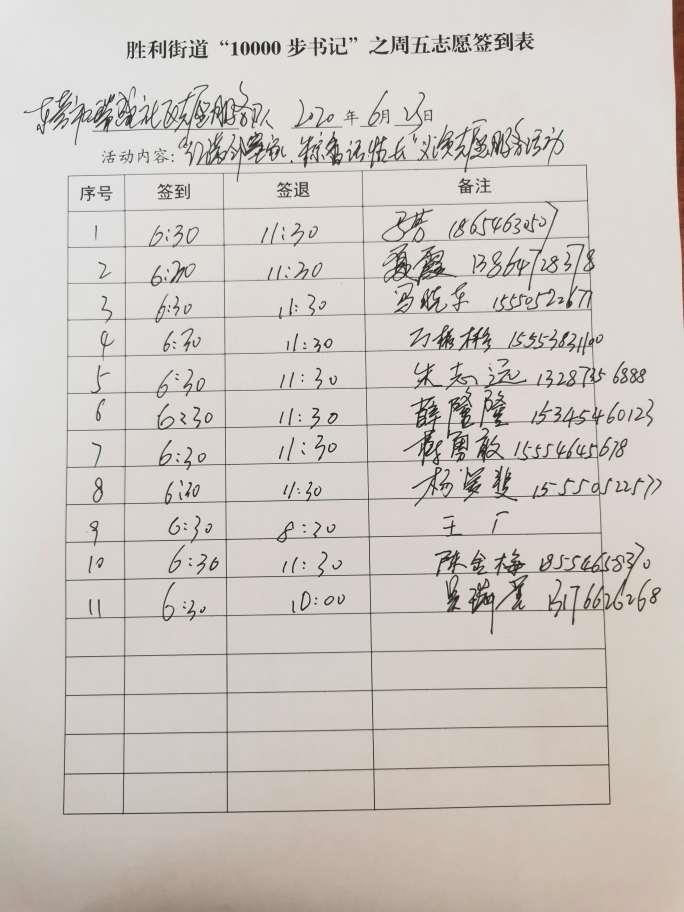 胜利街道“10000步书记”之周五志愿签到表
社区志愿服务队 2020年6月23日
活动内容:“红满邻里家、粽香话情长”义演志愿服务活动
序号 签到 签退 备注
1 6:30 11:30 18654630507
2 6:30 11:30 聂霞 13864728378
3 6:30 11:30 冯晓东 15550522677
4 6:30 11:30 15553831100
5 6:30 11:30 朱志远 13287356888
6 6:30 11:30 薛隆隆 15345460123
7 6:30 11:30 勇敢 15554645678
8 6:30 11:30 杨 15550522577
9 6:30 8:30 王广
10 6:30 11:30 陈金梅 18554658370
11 6:30 10:00 吴瑞 13176626268